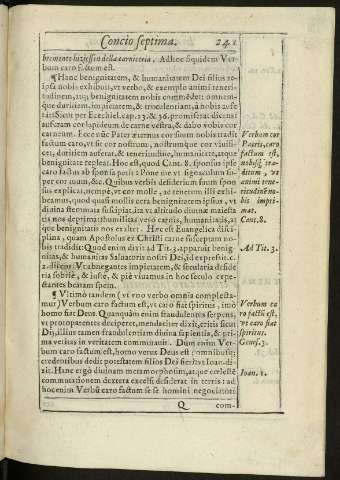 Concio septima. 241
bremente hiziesse della carniceria. Adhoc siquidem Verbum caro factum est.
¶ Hanc benignitatem, & humanitatem Dei filius reipsa nobis exhibuit, vt verbo, & exemplo animi teneritudinem, atq; benignitatem nobis commodet: omnemque duritiem, impietatem, & truculentiam, à nobis
tait Sicut per Ezechiel. cap. 13. & 36. promiserat dicens:
auferam cor lapideum de carne vestra, & dabo vobis cor
carneum. Ecce vbi Pater æternus cor suum nobis tradit
factum caro, vt sic cor nostrum, nostrumque cor
duritiem auferat, & teneritudine, humanitate, atque
benignitate repleat. Hoc est, quod Cant. 8. sponsus in
caro factus ab sponsa petit: Pone me vt signaculum super cor tuum, &c. Quibus verbis desiderium suum sponsus explicat, nempe, vt cor molle, ac tenerum illi exhibeamus, quod quasi mollis cera benignitatem ipsius, vt
diuina stemmata suscipiat, ita vt altitudo diuinæ maiestatis non deprimat humilitatem verò carnis, humanitatis, atque benignitatis nos exaltet. Hæc est Euangelica disciplina, quam Apostolus ex Christi carne susceptam nobis tradidit: Quod enim dixit ad Tit. 3. apparuit benignitas, & humanitas Saluatoris nostri Dei, id expressit c.
2. dicens: Vt abnegantes impietatem, & sæcularia desideria sobriè, & iustè, & piè viuamus in hoc sæculo expectantes beatam spem.
¶ Vltimò tandem (vt vno verbo omnia complectamur) Verbum caro factum est, vt caro fiat spiritus, imò
homo fiat Deus. Quanquàm enim fraudulentus serpens,
vt protoparentes deciperet, mendaciter dixit, eritis sicut
Dij, illius tamen fraudulentiam diuina sapientia, & prima veritas in veritatem commutauit. Dum enim Verbum caro factum est, homo verus Deus est: omnibusq;
credentibus dedit potestatem filios Dei fieri vt Ioan. dixit. Hanc ergò diuinam metamorphosim, atque cœlestē
commutationem dextera excelsi desiderat in terris: ad
hoc enim Verbū caro factum se se homini negociatori
Q com-
Verbum cor
Patris, caro
factum est,
nobisq; traditum, vt
animi teneritudinē nobis imprimat.
Cant. 8.
Ad Tit. 3.
Verbum caro factū est,
vt caro fiat
spiritus.
Genes. 3.
Ioan. 1.